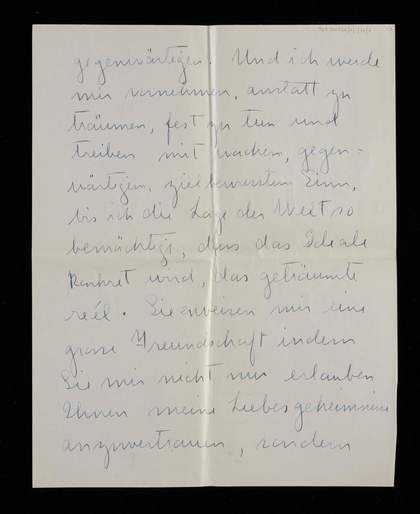 gegenwärtigen. Und ich werde
mir vornehmen, anstatt zu
träumen, fest zu tun und
treiben mit wachem, gegen-
wärtigen, zielbewusstem Sinn,
bis ich die Lage der Welt so
bemächtigt, dass das Ideale
Konkret wird, das geträumte
reél. Sie erweisen mir eine
grosse Freundschaft indem
Sie mir nicht nur erlauben
Ihnen meine Liebesgeheimnisse
anzuvertrauen, sondern